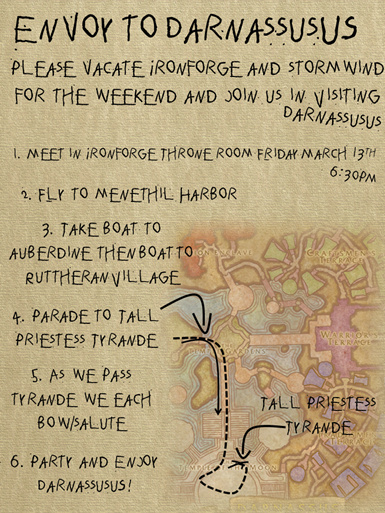 ENVOY TO DARNASSUSUS
PLEASE VACATE IRONFORGE AND STORMWIND
FOR THE WEEKEND AND JOIN US IN VISITING
DARNASSUSUS
1. MEET IN IRONFORGE THRONE ROOM FRIDAY MARCH 13TH
6:30PM
2. FLY TO MENETHIL HARBOR
3. TAKE BOAT TO
AUBERDINE THEN BOAT TO
RUTTHERAN VILLAGE
4. PARADE TO TALL
PRIESTESS TYRANDE
5. AS WE PASS
TYRANDE WE EACH
BOW/SALUTE
6. PARTY AND ENJOY
DARNASSUSUS!
CRAFTSMEN'S
TERRACE
WARRIOR'S
TERRACE
TALL PRIESTESS
TYRANDE